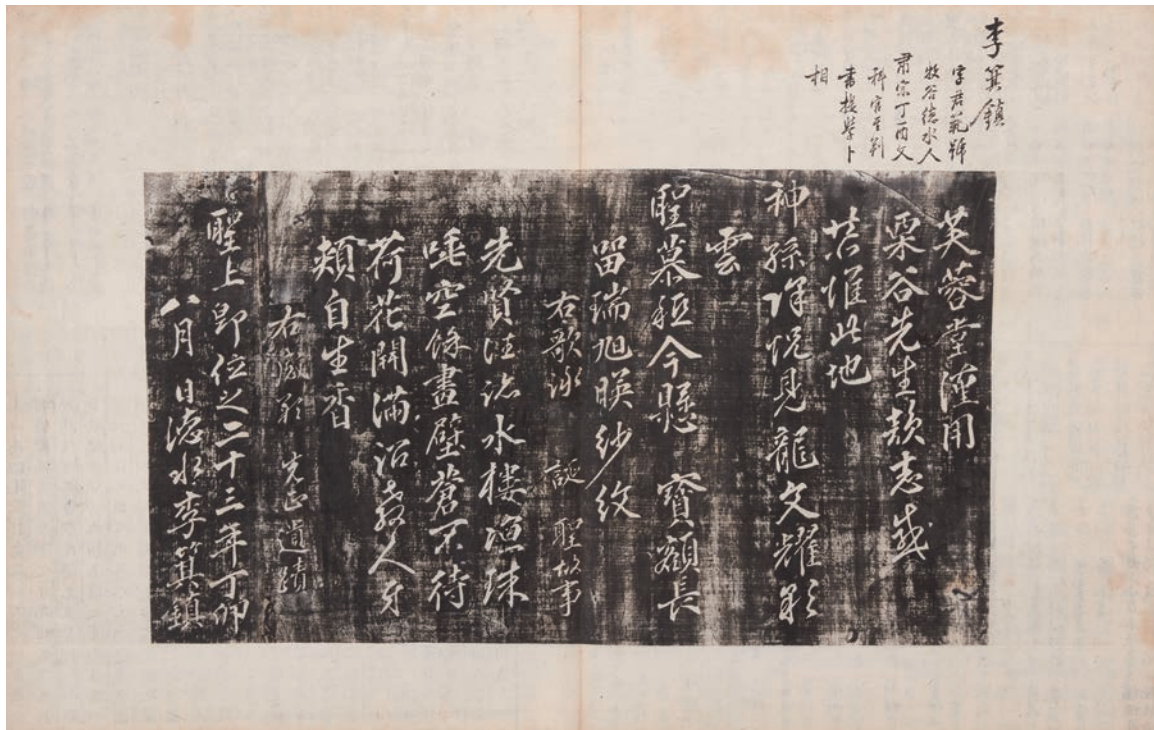 李箕鎮
字君範號
牧谷德水人
肅宗丁酉文
科官至判
書提學卜
相
芙蓉堂謹用
栗谷先生韻志感
昔惟此地
神孫降怳見龍文耀彩
雲
聖慕秪今懸 寶額長
留瑞旭暎紗紋
右歌詠 誕聖故事
先賢 詠水樓 珠
唾空餘畫壁蒼不待
荷花開滿沼 人牙
頰自生香
右感 先正遺蹟
聖上卽位之二十三年丁卯
八月 日德水李箕鎮